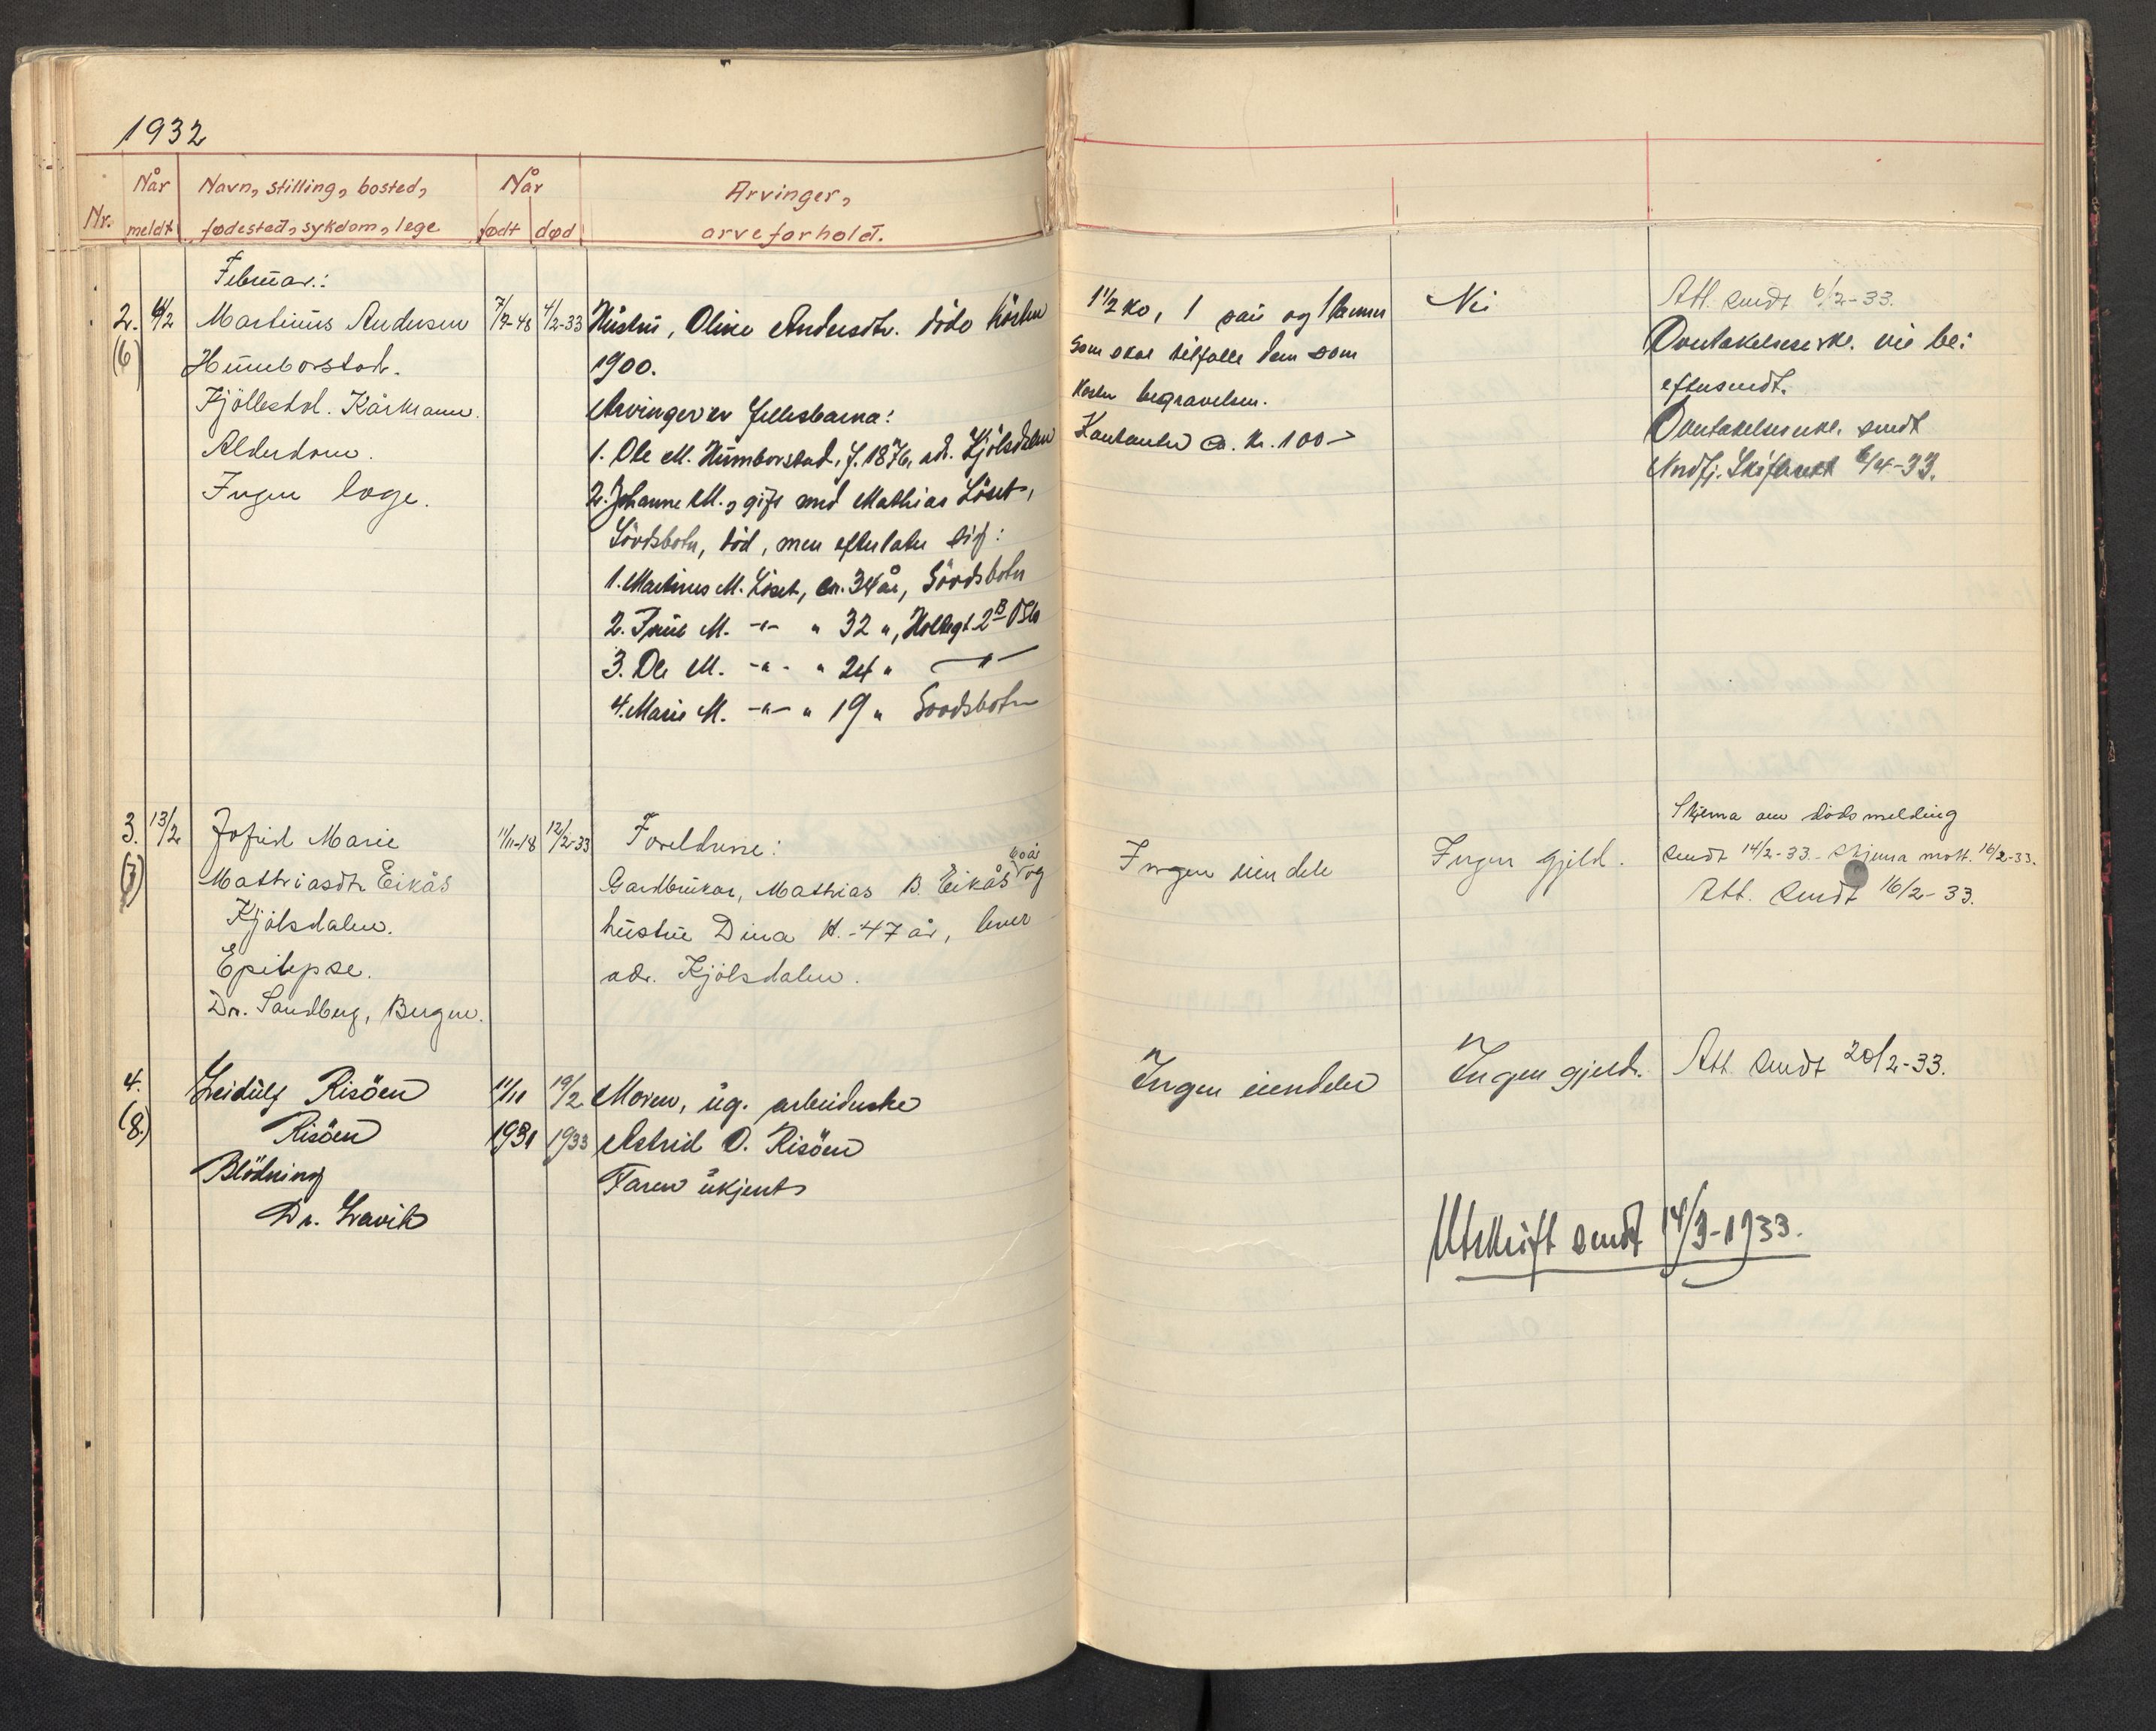 1932
Nr. Når meldt Navn, stilling, bosted, fødested, sykdom, lege Når født død Arvinger, arveforhold.
Februar:
2. (6) 6/2 Martinus Andersen 7/9-48 4/2-33
Humborstad.
Kjöllesdal. Kårmann.
Alderdom.
Ingen lege.
Hustru, Oline Andersdtr. döde hösten
1900.
Arvinger er fellesbarna:
1. Ole M. Humborstad, f. 1876, adr. Kjölsdalen
2. Johanne M., gift med Mathias Löset,
Sördsbotn, död, men efterlater sig:
1. Martinus M. Löset, ca. 34 år, Sördsbotn
2. M. -"- " 32 ", Holbgt. 2 B Oslo
3. Ole M. -"- " 24 " -"-
4. Marie M. -"- " 19 " Sördsbotn
1 1/2 ko, 1 sau og 1
som skal tilfalle dem som
koster begravelsen.
Kontanter ca. kr. 100-
Nei
Att. sendt 6/2-33.
Overtakelseserkl. vil bei
eftersendt.
Overtakelseserkl. sendt
Nordfj. Skifterett 6/4-33.
3. (7) 13/2 Jofrid Marie 11/11-18 12/2-33
Mathiasdtr Eikås
Kjölsdalen.
Epilepse.
Dr. Sandberg, Bergen.
Foreldrene:
Gardbrukar, Mathias B. Eikås 60 år og
hustru Dina H. - 47 år, lever
adr. Kjölsdalen.
Ingen eiendele
Ingen gjeld.
Skjema om dödsmelding
sendt 14/2-33. Skjema mott. 16/2-33.
Att. sendt 16/2-33.
4. (8.) Leidulf Risöen 11/11 19/2
Risöen 1931 1933
Blödning
Dr. Lavik
Moren, ug. arbeiderske
Astrid O. Risöen
Faren ukjent
Ingen eiendeler
Ingen gjeld.
Att. sendt 20/2-33.
Utskrift sendt 14/3-1933.